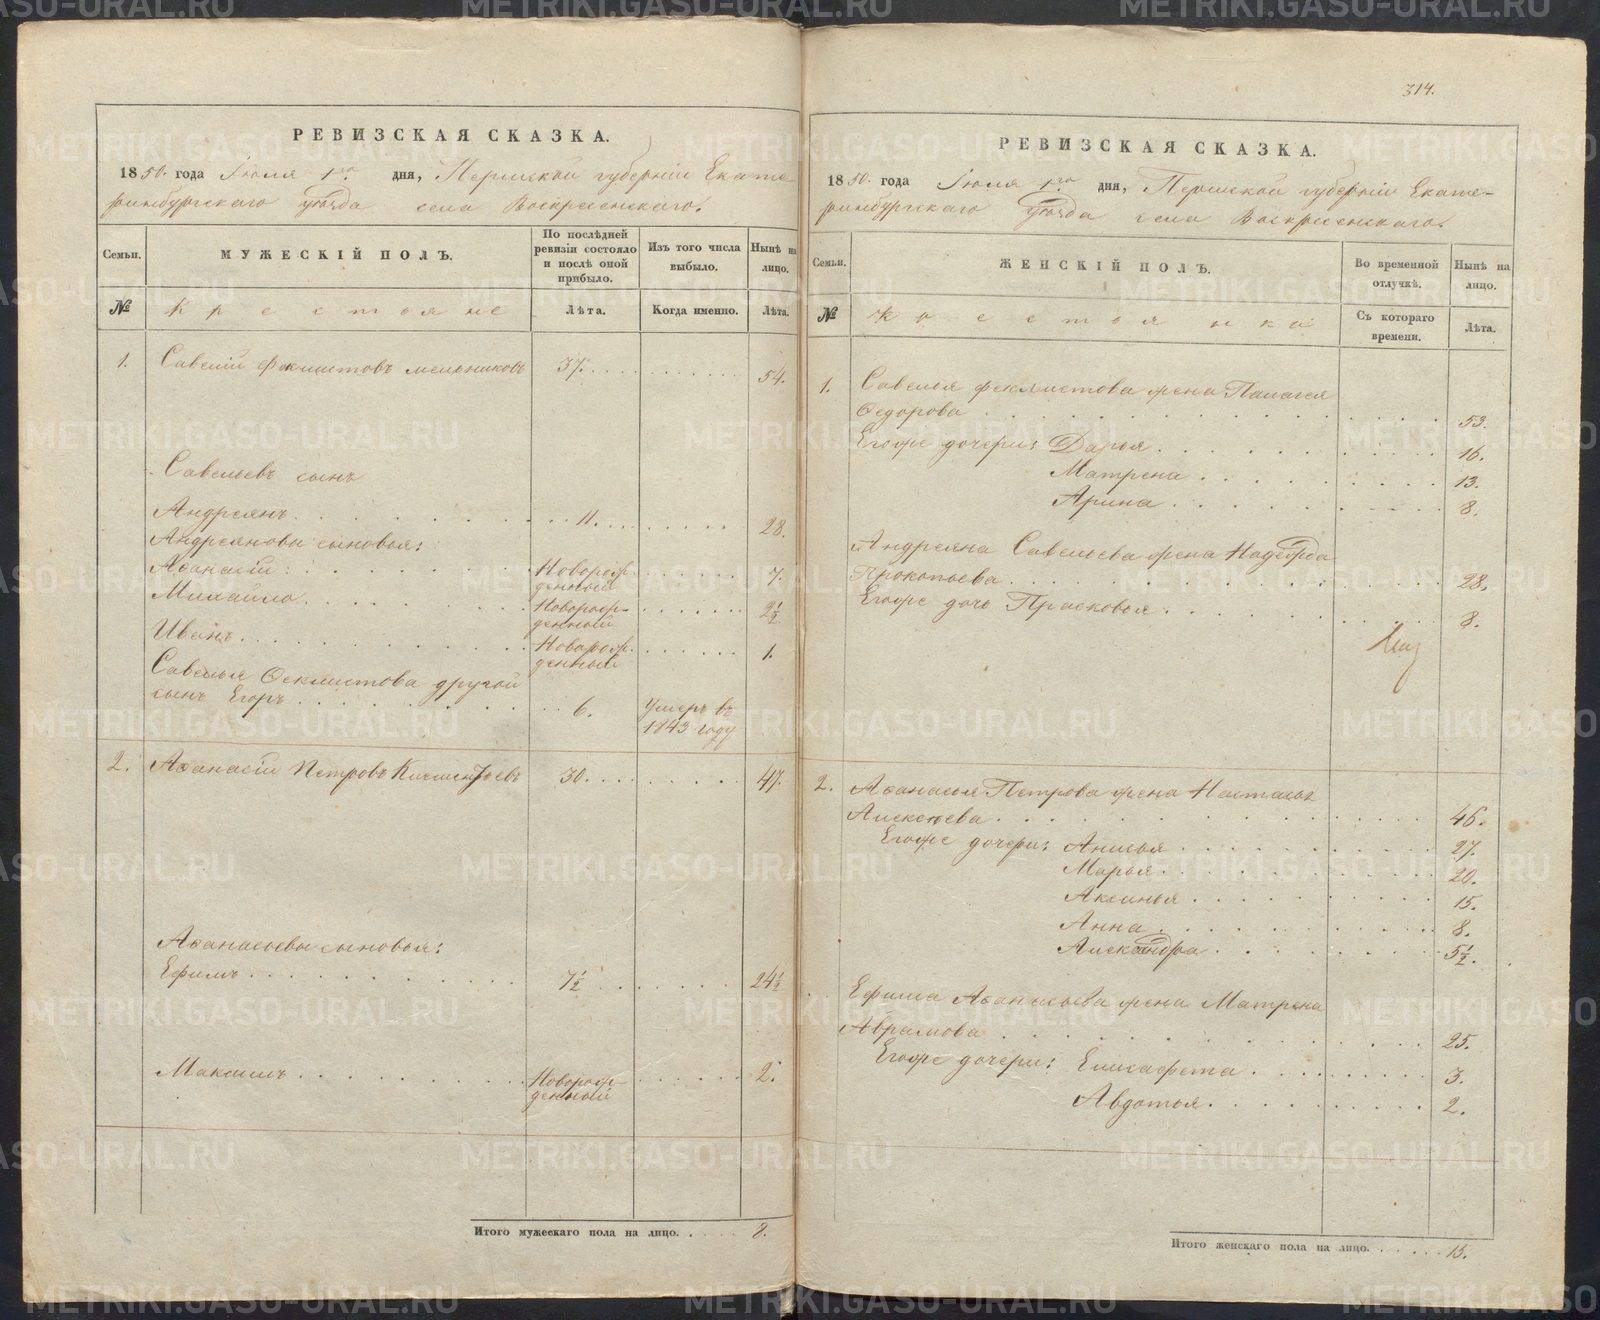 314.
РЕВИЗСКАЯ СКАЗКА.
1850. года Июля 1го дня, Пермской губерніи Екате-
ринбургскаго уѣзда села Воскресенскаго.
Семьи.
МУЖЕСКІЙ ПОЛЪ.
По послѣдней
ревизіи состояло
и послѣ оной
прибыло.
Изъ того числа
выбыло.
Нынѣ на
лицо.
№
Крестьяне
Лѣта.
Когда именно.
Лѣта.
1. Савелій Феклистовъ Мельниковъ 37. 54.
Савельевъ сынъ
Андреянъ 11. 28.
Андреяновы сыновья:
Афанасій Новорож-
денный 7.
Михайло Новорож-
денный 2 1/2
Иванъ Новорож-
денный 1.
Савелья Феклистова другой
сынъ Егоръ 6. Умеръ въ
1843 году
2. Афанасій Петровъ 30. 47.
Афанасьевы сыновья:
Ефимъ 7 1/2 24 1/2
Максимъ Новорож-
денный 2.
Итого мужескаго пола на лицо. 8.
РЕВИЗСКАЯ СКАЗКА.
1850. года Июля 1го дня, Пермской губерніи Екате-
ринбургскаго уѣзда села Воскресенскаго.
Семьи.
ЖЕНСКІЙ ПОЛЪ.
Во временной
отлучкѣ.
Нынѣ на
лицо.
№
Крестьянки
Съ котораго
времени.
Лѣта.
1. Савелья Феклистова жена Палагея
Федорова 53.
Егоже дочери: Дарья 16.
Матрена 13.
Арина 8.
Андреяна Савельева жена Надежда
Прокопьева 28.
Егоже дочь Прасковья 8.
2. Афанасья Петрова жена Настасья
Алексѣева 46.
Егоже дочери: Анисья 27.
Марья 20.
Аксинья 15.
Анна 8.
Александра 5 1/2.
Ефима Афанасьева жена Матрена
Абрамова 25.
Егоже дочери: Елисафета 3.
Авдотья 2.
Итого женскаго пола на лицо. 15.
METRIKI.GASO-URAL.RU